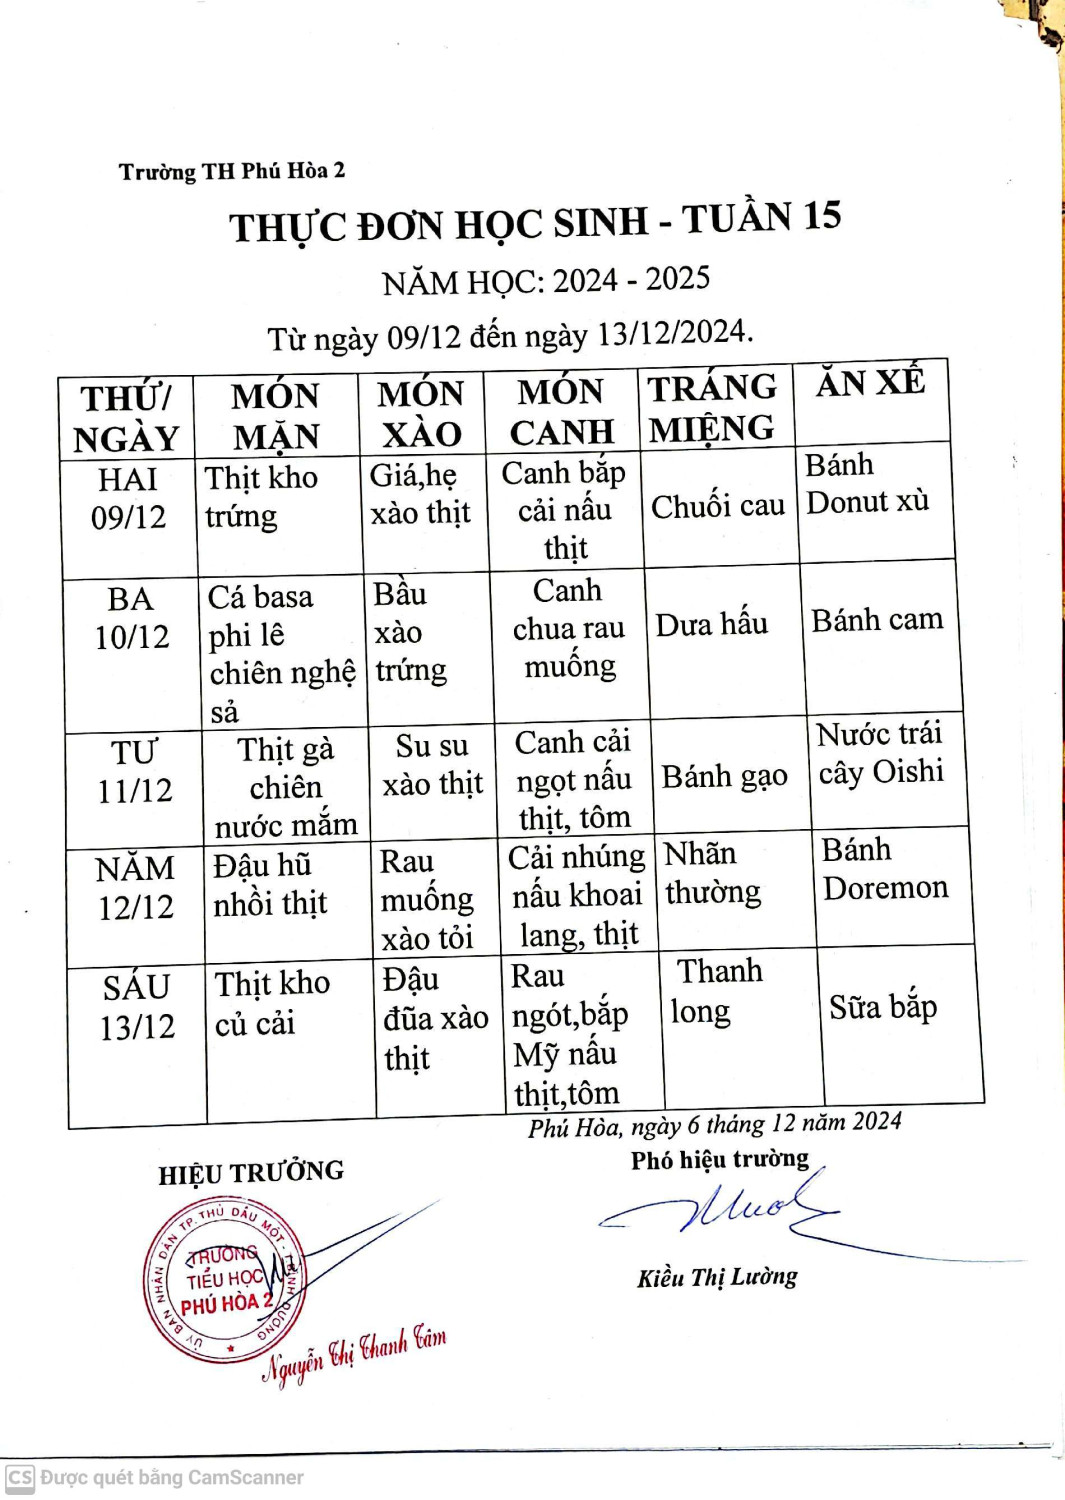 Trường TH Phú Hòa 2
THỰC ĐƠN HỌC SINH - TUẦN 15
NĂM HỌC: 2024 - 2025
Từ ngày 09/12 đến ngày 13/12/2024.
THỨ/
NGÀY
MÓN
MẶN
MÓN
XÀO
MÓN
CANH
TRÁNG
MIỆNG
ĂN XẾ
HAI
09/12
Thịt kho
trứng
Giá,hẹ
xào thịt
Canh bắp
cải nấu
thịt
Chuối cau
Bánh
Donut xù
BA
10/12
Cá basa
phi lê
chiên nghệ
sả
Bầu
xào
trứng
Canh
chua rau
muống
Dưa hấu
Bánh cam
TƯ
11/12
Thịt gà
chiên
nước mắm
Su su
xào thịt
Canh cải
ngọt nấu
thịt, tôm
Bánh gạo
Nước trái
cây Oishi
NĂM
12/12
Đậu hũ
nhồi thịt
Rau
muống
xào tỏi
Cải nhúng
nấu khoai
lang, thịt
Nhãn
thường
Bánh
Doremon
SÁU
13/12
Thịt kho
củ cải
Đậu
đũa xào
thịt
Rau
ngót,bắp
Mỹ nấu
thịt,tôm
Thanh
long
Sữa bắp
Phú Hòa, ngày 6 tháng 12 năm 2024
HIỆU TRƯỞNG
Phó hiệu trường
ỦY BAN NHÂN DÂN TP.THỦ DẦU MỘT - T.BÌNH DƯƠNG
TRƯỜNG
TIỂU HỌC
PHÚ HÒA 2
Kiều Thị Lường
Nguyễn Thị Thanh Tâm
CS Được quét bằng CamScanner